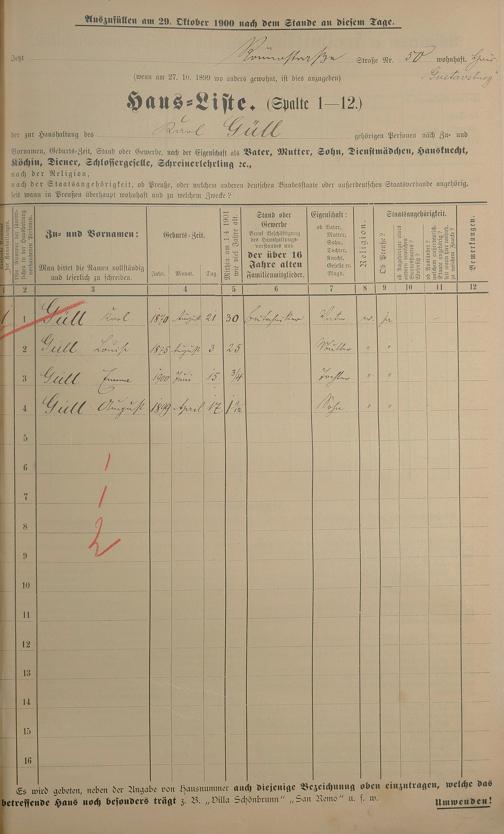 Auszufüllen am 29. Oktober 1900 nach dem Stande an diesem Tage.
Jetzt Straße Nr. 50 wohnhaft
(wenn am 27. 10. 1899 wo anders gewohnt, ist dies anzugeben) Gustavsburg
Haus-Liste. (Spalte 1—12.)
der zur Haushaltung des Karl Güll gehörigen Personen nach Zu- und
Vornamen, Geburts-Zeit, Stand oder Gewerbe, nach der Eigenschaft als Vater, Mutter, Sohn, Dienstmädchen, Hausknecht,
Köchin, Diener, Schlossergeselle, Schreinerlehrling ꝛc.,
nach der Religion,
nach der Staatsangehörigkeit, ob Preuße, oder welchem anderen deutschen Bundesstaate oder außerdeutschen Staatsverbande angehörig,
seit wann in Preußen überhaupt wohnhaft und zu welchem Zwecke?
Zu- und Vornamen:
Man bittet die Namen vollständig
und leserlich zu schreiben.
Geburts-Zeit.
Jahr. Monat. Tag.
Stand oder
Gewerbe
der über 16
Jahre alten
Familienmitglieder.
Eigenschaft:
ob Vater,
Mutter,
Sohn,
Tochter,
Knecht,
Geselle ob.
Magd.
Religion.
Ob Preuße?
Staatsangehörigkeit.
Bemerkungen.
1 2 3 4 5 6 7 8 9 10 11 12
1 Güll Karl 1870 August 21 30 Vater ev. ja
2 Güll Louise 1875 August 3 25 Mutter " "
3 Güll Emma 1900 Juni 15 3/4 Tochter " "
4 Güll August 1899 April 17 1 1/2 Sohn " "
5
6 1
7 1
8 2
9
10
11
12
13
14
15
16
Es wird gebeten, neben der Angabe von Hausnummer auch diejenige Bezeichnung oben einzutragen, welche das
betreffende Haus noch besonders trägt z. B. „Villa Schönbrunn" „San Remo" u. s. w. Umwenden!